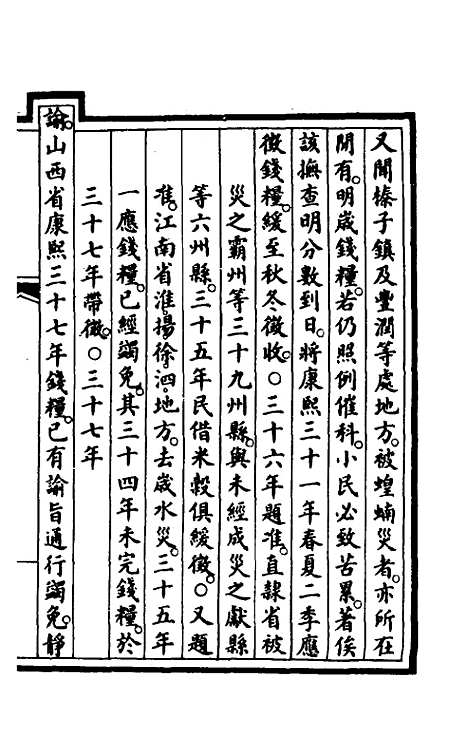 又聞榛子鎮及豐潤等處地方。被蝗蝻災者。亦所在
閒有。明歲錢糧。若仍照例催科。小民必致苦累。著俟
該撫查明分數到日。將康熙三十一年春夏二季應
徵錢糧。緩至秋冬徵收。○三十六年題准。直隸省被
災之霸州等三十九州縣。與未經成災之獻縣
等六州縣。三十五年民借米穀俱緩徵。○又題
准。江南省淮揚徐泗地方。去歲水災。三十五年
一應錢糧。已經蠲免。其三十四年未完錢糧。於
三十七年帶徵。○三十七年
諭。山西省康熙三十七年錢糧。已有諭旨通行蠲免。靜